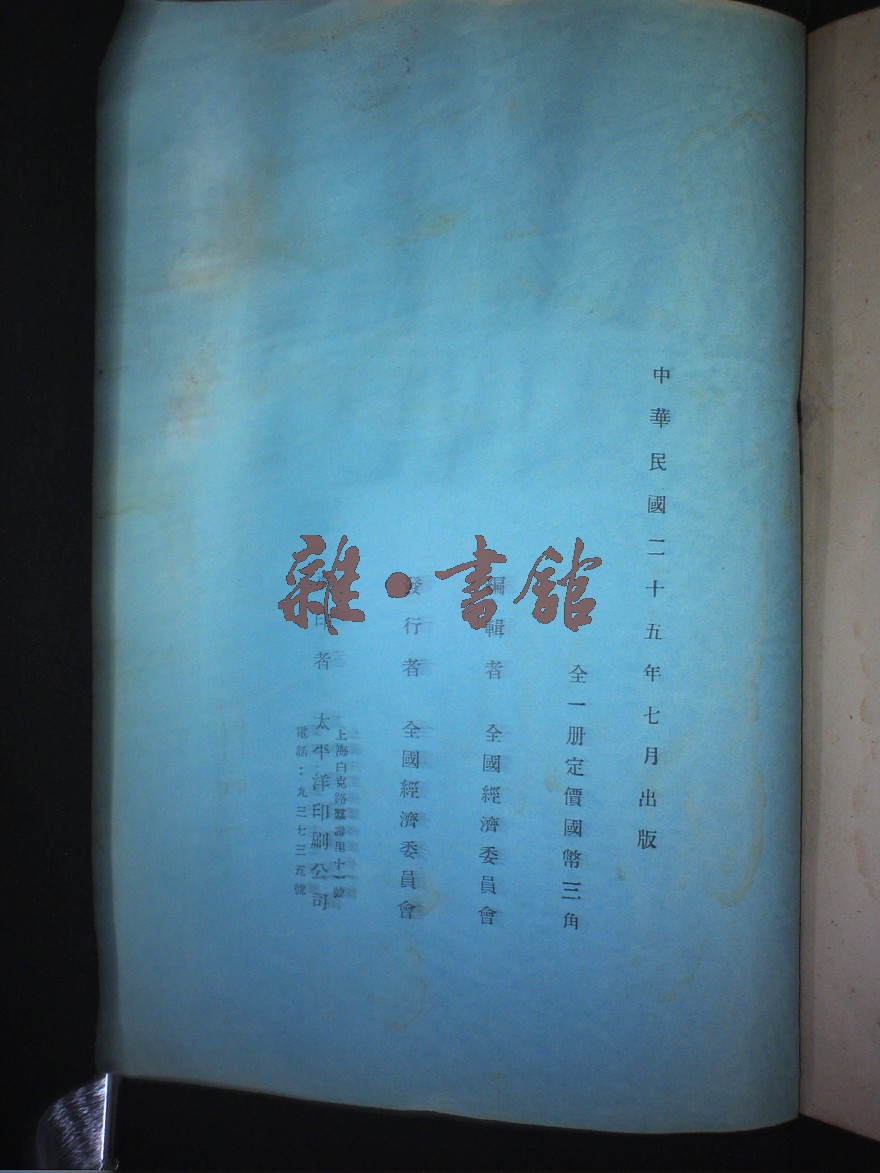 中華民國二十五年七月出版
全一册定價國幣三角
編輯者 全國經濟委員會
發行者 全國經濟委員會
印者 太平洋印刷公司
上海白克路 里十一號
電話：九三七三五號
雜·書館